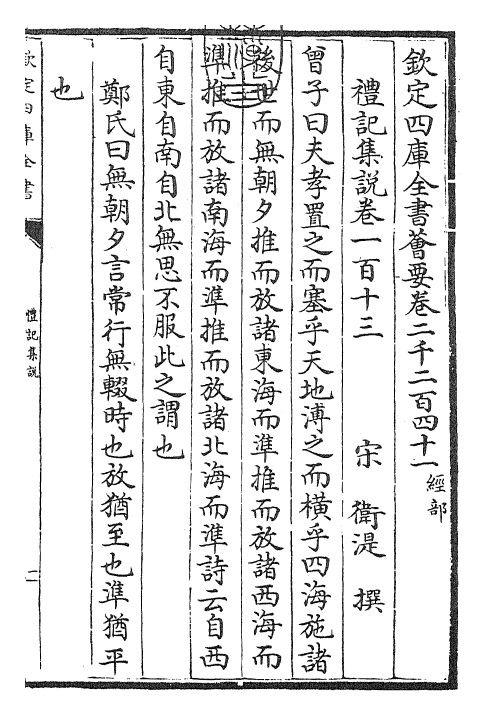 欽定四庫全書薈要卷二千二百四十一經部
禮記集說卷一百十三
宋 衛湜 撰
曾子曰夫孝置之而塞乎天地溥之而橫乎四海施諸
後世而無朝夕推而放諸東海而準推而放諸西海而
準推而放諸南海而準推而放諸北海而準詩云自西
自東自南自北無思不服此之謂也
鄭氏曰無朝夕言常行無輟時也放猶至也準猶平
也
欽定四庫全書
禮記集說
一